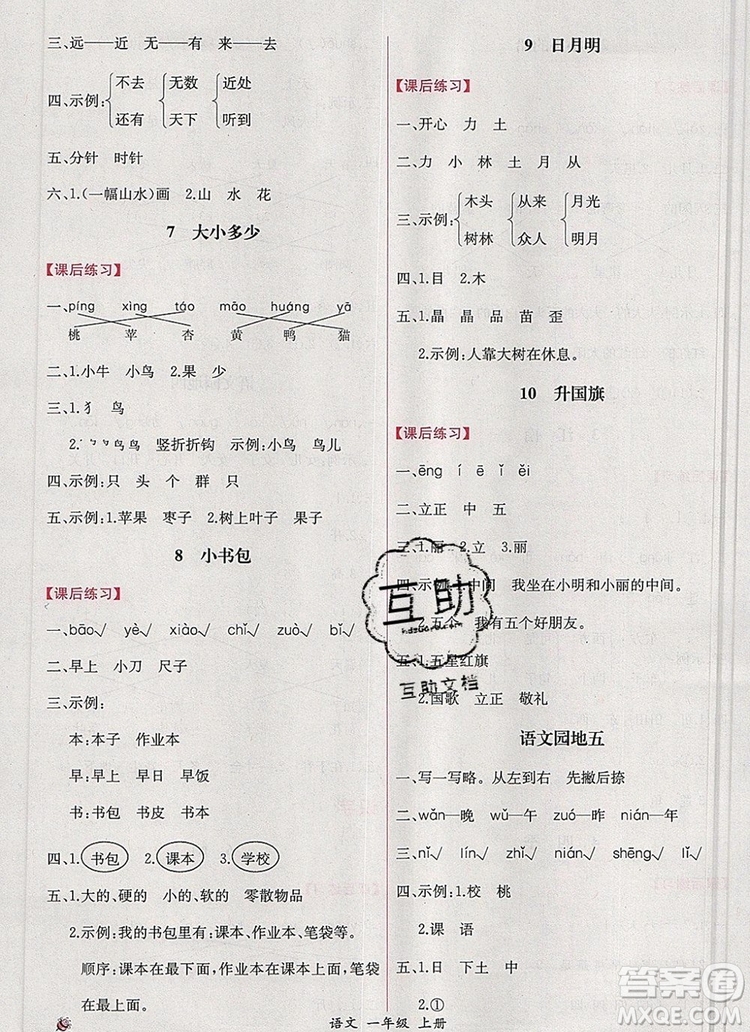 三、远——近 无——有 来——去
四、示例: 不去 无数 近处
还有 天下 听到
五、分针 时针
六、1.(一幅山水)画 2.山 水 花
7 大小多少
【课后练习】
一、píng xìng táo māo huáng yā
桃 苹 杏 黄 鸭 猫
二、1.小牛 小鸟 2.果 少
三、1.犭 鸟
竖折折钩 示例:小鸟 鸟儿
四、示例:只 头 个 群 只
五、示例:1.苹果 枣子 2.树上叶子 果子
8 小书包
【课后练习】
一、bāo√ yè√ xiào√ chǐ√ zuò√ bǐ√
二、早上 小刀 尺子
三、示例:
本:本子 作业本
早:早上 早日 早饭
书:书包 书皮 书本
四、1.书包 2.课本 3.学校
五、1.大的、硬的 小的、软的 零散物品
2.示例:我的书包里有:课本、作业本、笔袋等。
顺序:课本在最下面,作业本在课本上面,笔袋
在最上面。
9 日月明
【课后练习】
一、开心 力 土
二、力 小 林 土 月 从
三、示例: 木头 从来 月光
树林 众人 明月
四、1.目 2.木
五、1.晶 晶 品 苗 歪
2.示例:人靠大树在休息。
10 升国旗
【课后练习】
一、ēng í ē ǐ ěi
二、立正 中 五
三、1.丽 2.立 3.丽
四、示例:1.中间 我坐在小明和小丽的中间。
2.五个 我有五个好朋友。
五、1.五星红旗
2.国歌 立正 敬礼
语文园地五
一、写一写略。从左到右 先撇后捺
二、wǎn—晚 wǔ—午 zuó—昨 nián—年
三、nǐ√ lín√ nián√ shēng√ lì√
四、示例:1.校 桃
2.课 语
五、1.日 下土 中
2.①
语文 一年级 上册
互助
hdzuoye.com
互助文档
答案圈
MXQE.COM